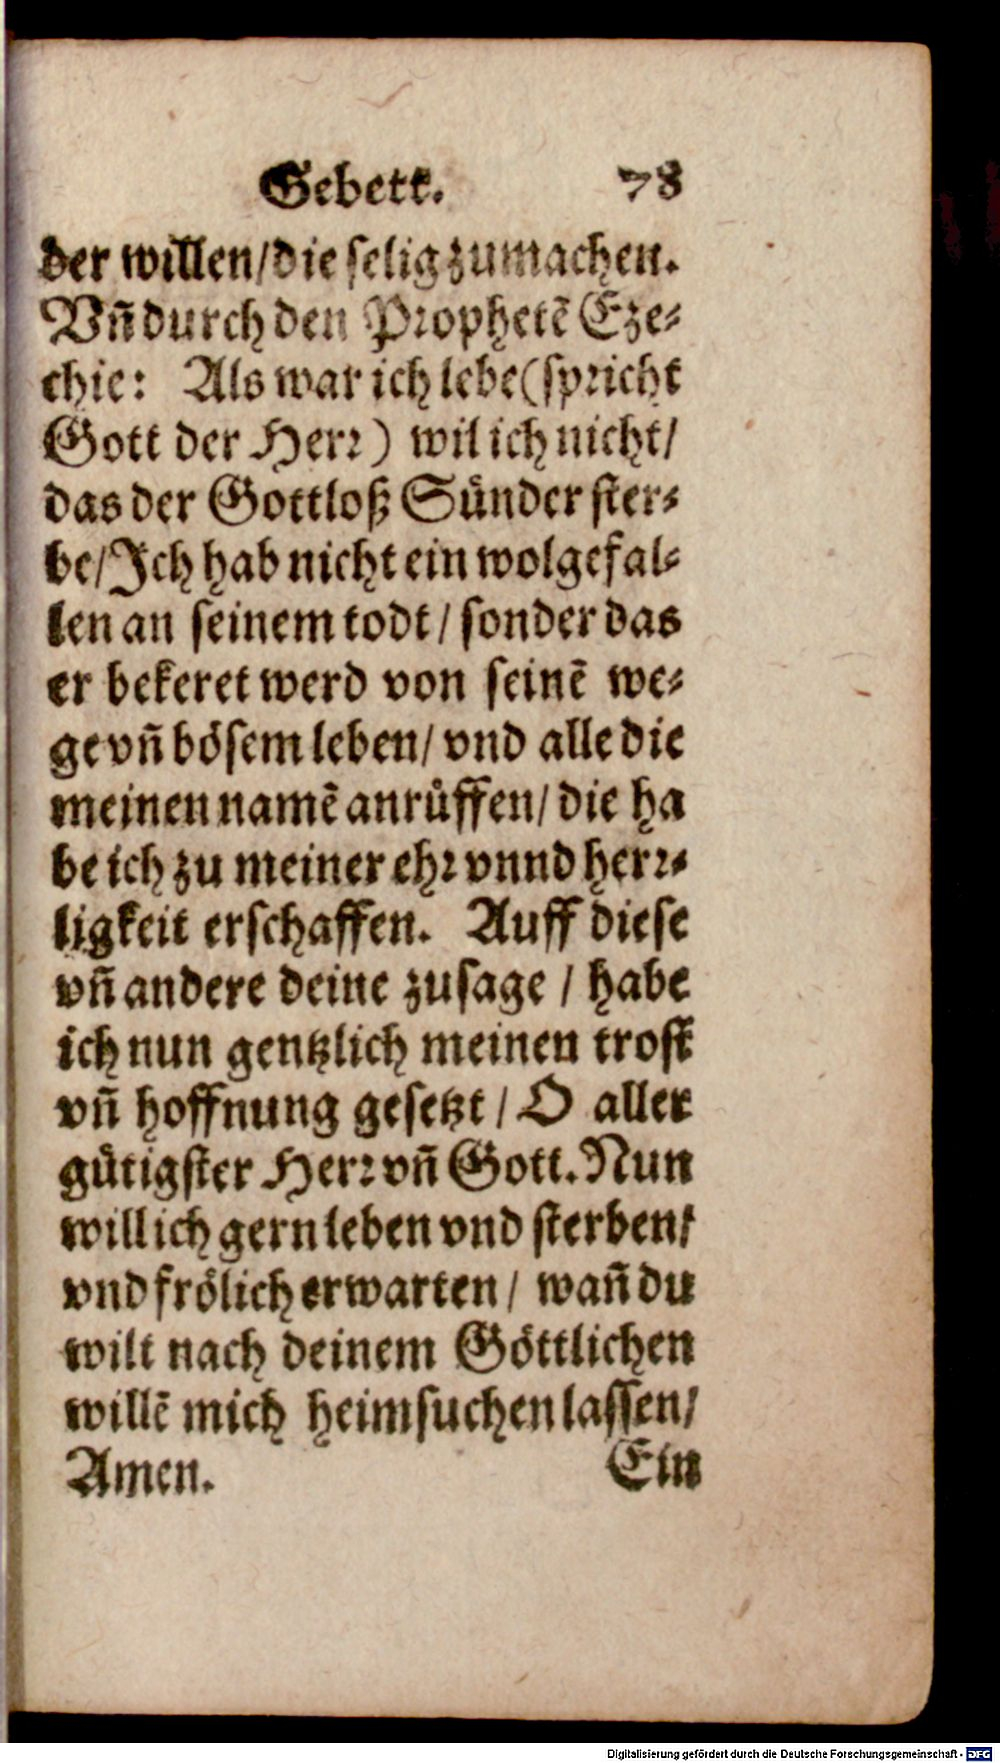 Gebett. 78
der willen/die selig zumachen.
Vñ durch den Prophetẽ Eze-
chie: Als war ich lebe (spricht
Gott der Herr) wil ich nicht/
das der Gottloß Sünder ster-
be/Ich hab nicht ein wolgefal-
len an seinem todt/ sonder das
er bekeret werd von seinẽ we-
ge vñ bösem leben/ vnd alle die
meinen namẽ anrüffen/ die ha
be ich zu meiner ehr vnnd herr-
ligkeit erschaffen. Auff diese
vñ andere deine zusage / habe
ich nun gentzlich meinen trost
vñ hoffnung gesetzt / O aller
gütigster Herr vñ Gott. Nun
will ich gern leben vnd sterben/
vnd frölich erwarten/ wañ du
wilt nach deinem Göttlichen
willẽ mich heimsuchen lassen/
Amen. Ein
Digitalisierung gefördert durch die Deutsche Forschungsgemeinschaft - DFG